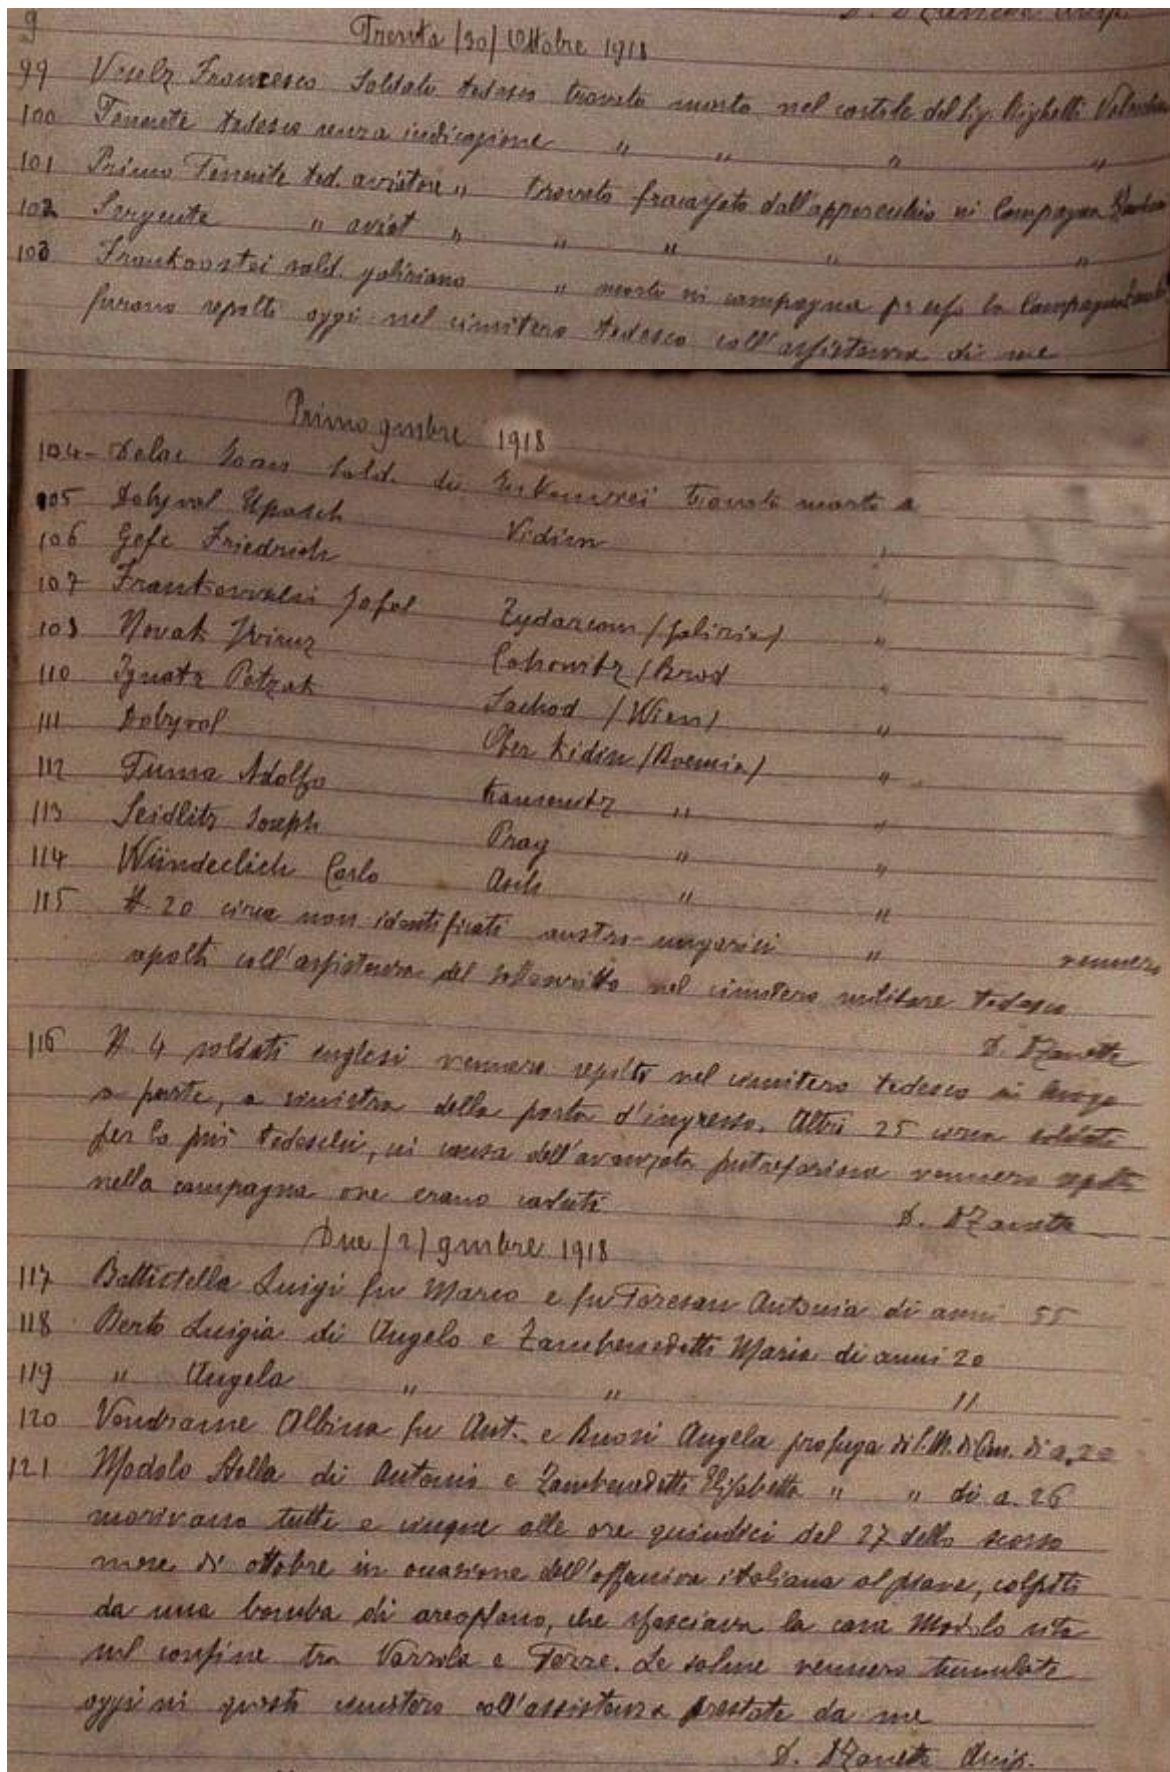 9
Trenta (30) Ottobre 1918
99 Francesco Soldato tedesco trovato morto nel cortile del Sig. Righetti
100 Tenente tedesco senza indicazione " " " "
101 Primo Tenente ted. aviatore " trovato fracassato dall'apparecchio in Campagna
102 Sergente " aviat " " " " "
103 sold. galiziano " morto in campagna presso la Campagna
furono sepolti oggi nel cimitero tedesco coll'assistenza di me
Primo 9mbre 1918
104- Sold. di trovato morto a
105 Dobyval Vidim "
106 Friedrich "
107 Frankowski Zydarcom (Galizia) "
108 Novak "
110 Ignatz Petzak (Wien) "
111 Dobyval Ober Vidim (Boemia) "
112 Tuma Adolfo " "
113 Seidlitz Joseph Prag " "
114 Wünderlich Carlo Asch " "
115 N. 20 circa non identificati austro-ungarici " vennero
sepolti coll'assistenza del sottoscritto nel cimitero militare tedesco
D. Zanette
116 N. 4 soldati inglesi vennero sepolti nel cimitero tedesco in luogo
a parte, a sinistra della porta d'ingresso. Altri 25 circa soldati
per lo più tedeschi, in causa dell'avanzata putrefazione vennero sepolti
nella campagna ove erano caduti
D. Zanette
Due (2) 9mbre 1918
117 Battistella Luigi fu Marco e fu Toresan Antonia di anni 55
118 Berto Luigia di Angelo e Zambenedetti Maria di anni 20
119 " Angela " " 11
120 Vendrame Albina fu Ant. e Buosi Angela profuga di di a. 20
121 Modolo Stella di Antonio e Zambenedetti Elisabetta " " di a. 26
morivano tutti e cinque alle ore quindici del 27 dello scorso
mese di ottobre in occasione dell'offensiva italiana al piave, colpiti
da una bomba di areoplano, che sfasciava la casa Modolo sita
sul confine tra Vazzola e Tezze. Le salme vennero tumulate
oggi in questo cimitero coll'assistenza prestata da me
D. Zanette Arcip.